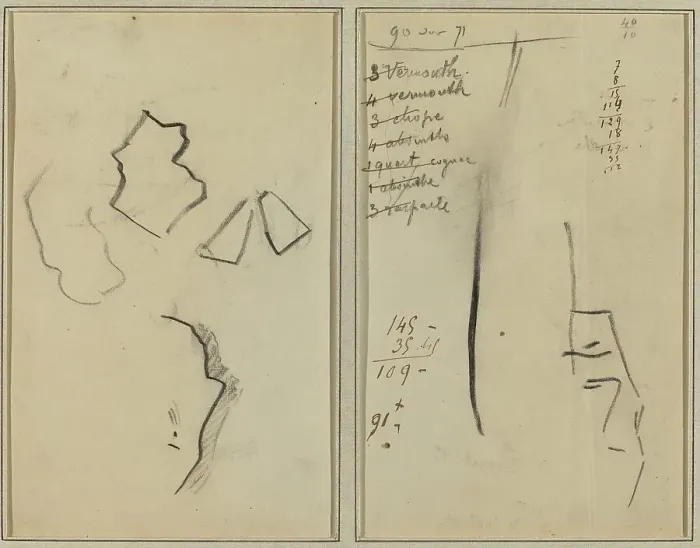 90 sur 71
40
10
3 Vermouth.
4 vermouth
3 chope
4 absinthe
1 quart cognac
1 absinthe
3
7
8
15
114
129
18
147
35
145 -
35.45
109 -
91 +